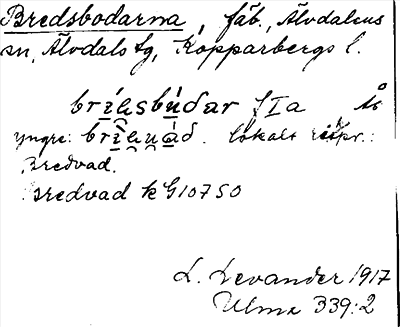 Bredsbodarna, fäb., Älvdalens
sn, Älvdals tg, Kopparbergs l.
bri̲e̯sbu̲dar fIa Åb
yngre: bri̲e̯u̯a̲d. lokalt rspr.:
Bredvad.
Bredvad k G10750
L. Levander 1917
Ulma 339:2